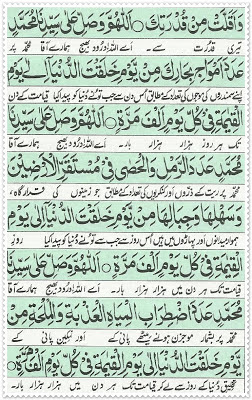 وَاَقَلَّتْ مِنْ قُدْرَتِكَ ○ اَللّٰهُمَّ وَصَلِّ عَلٰى سَيِّدِنَا مُحَمَّدٍ
تیری قدرت سے۔ اے اللہ! درود بھیج ہمارے آقا محمد پر
عَدَدَ اَمْوَاجِ بِحَارِكَ مِنْ يَوْمِ خَلَقْتَ الدُّنْيَا اِلٰى يَوْمِ
اپنے سمندروں کی موجوں کی تعداد کے مطابق اس دن سے جب تو نے دنیا کو پیدا کیا قیامت کے دن
الْقِيٰمَةِ فِىْ كُلِّ يَوْمٍ اَلْفَ مَرَّةٍ ○ اَللّٰهُمَّ وَصَلِّ عَلٰى سَيِّدِنَا
تک ہر دن ہزار بار۔ اے اللہ! درود بھیج ہمارے آقا
مُحَمَّدٍ عَدَدَ الرَّمْلِ وَالْحَصٰى فِىْ مُسْتَقَرِّ الْاَرْضِيْنَ
محمد پر ریت کے ذروں اور کنکریوں کی تعداد کے مطابق جو زمینوں کی قرارگاہ،
وَسَهْلِهَا وَجِبَالِهَا مِنْ يَوْمِ خَلَقْتَ الدُّنْيَا اِلٰى يَوْمِ
ہموار میدانوں اور پہاڑوں میں ہیں اس روز سے جب سے تو نے دنیا کو پیدا کیا روز
الْقِيٰمَةِ فِىْ كُلِّ يَوْمٍ اَلْفَ مَرَّةٍ ○ اَللّٰهُمَّ وَصَلِّ عَلٰى سَيِّدِنَا
قیامت تک ہر دن میں ہزار ہزار بار۔ اے اللہ! درود بھیج ہمارے آقا
مُحَمَّدٍ عَدَدَ اضْطِرَابِ الْمِيَاهِ الْعَذْبَةِ وَالْمِلْحَةِ مِنْ
محمد پر بیشمار موجزن ہونے میٹھے پانی کے اور نمکین پانی کے
يَوْمِ خَلَقْتَ الدُّنْيَا اِلٰى يَوْمِ الْقِيٰمَةِ فِىْ كُلِّ يَوْمٍ اَلْفَ مَرَّةٍ ○
تخلیق دنیا کے روز سے لے کر قیامت تک ہر دن میں ہزار ہزار بار۔